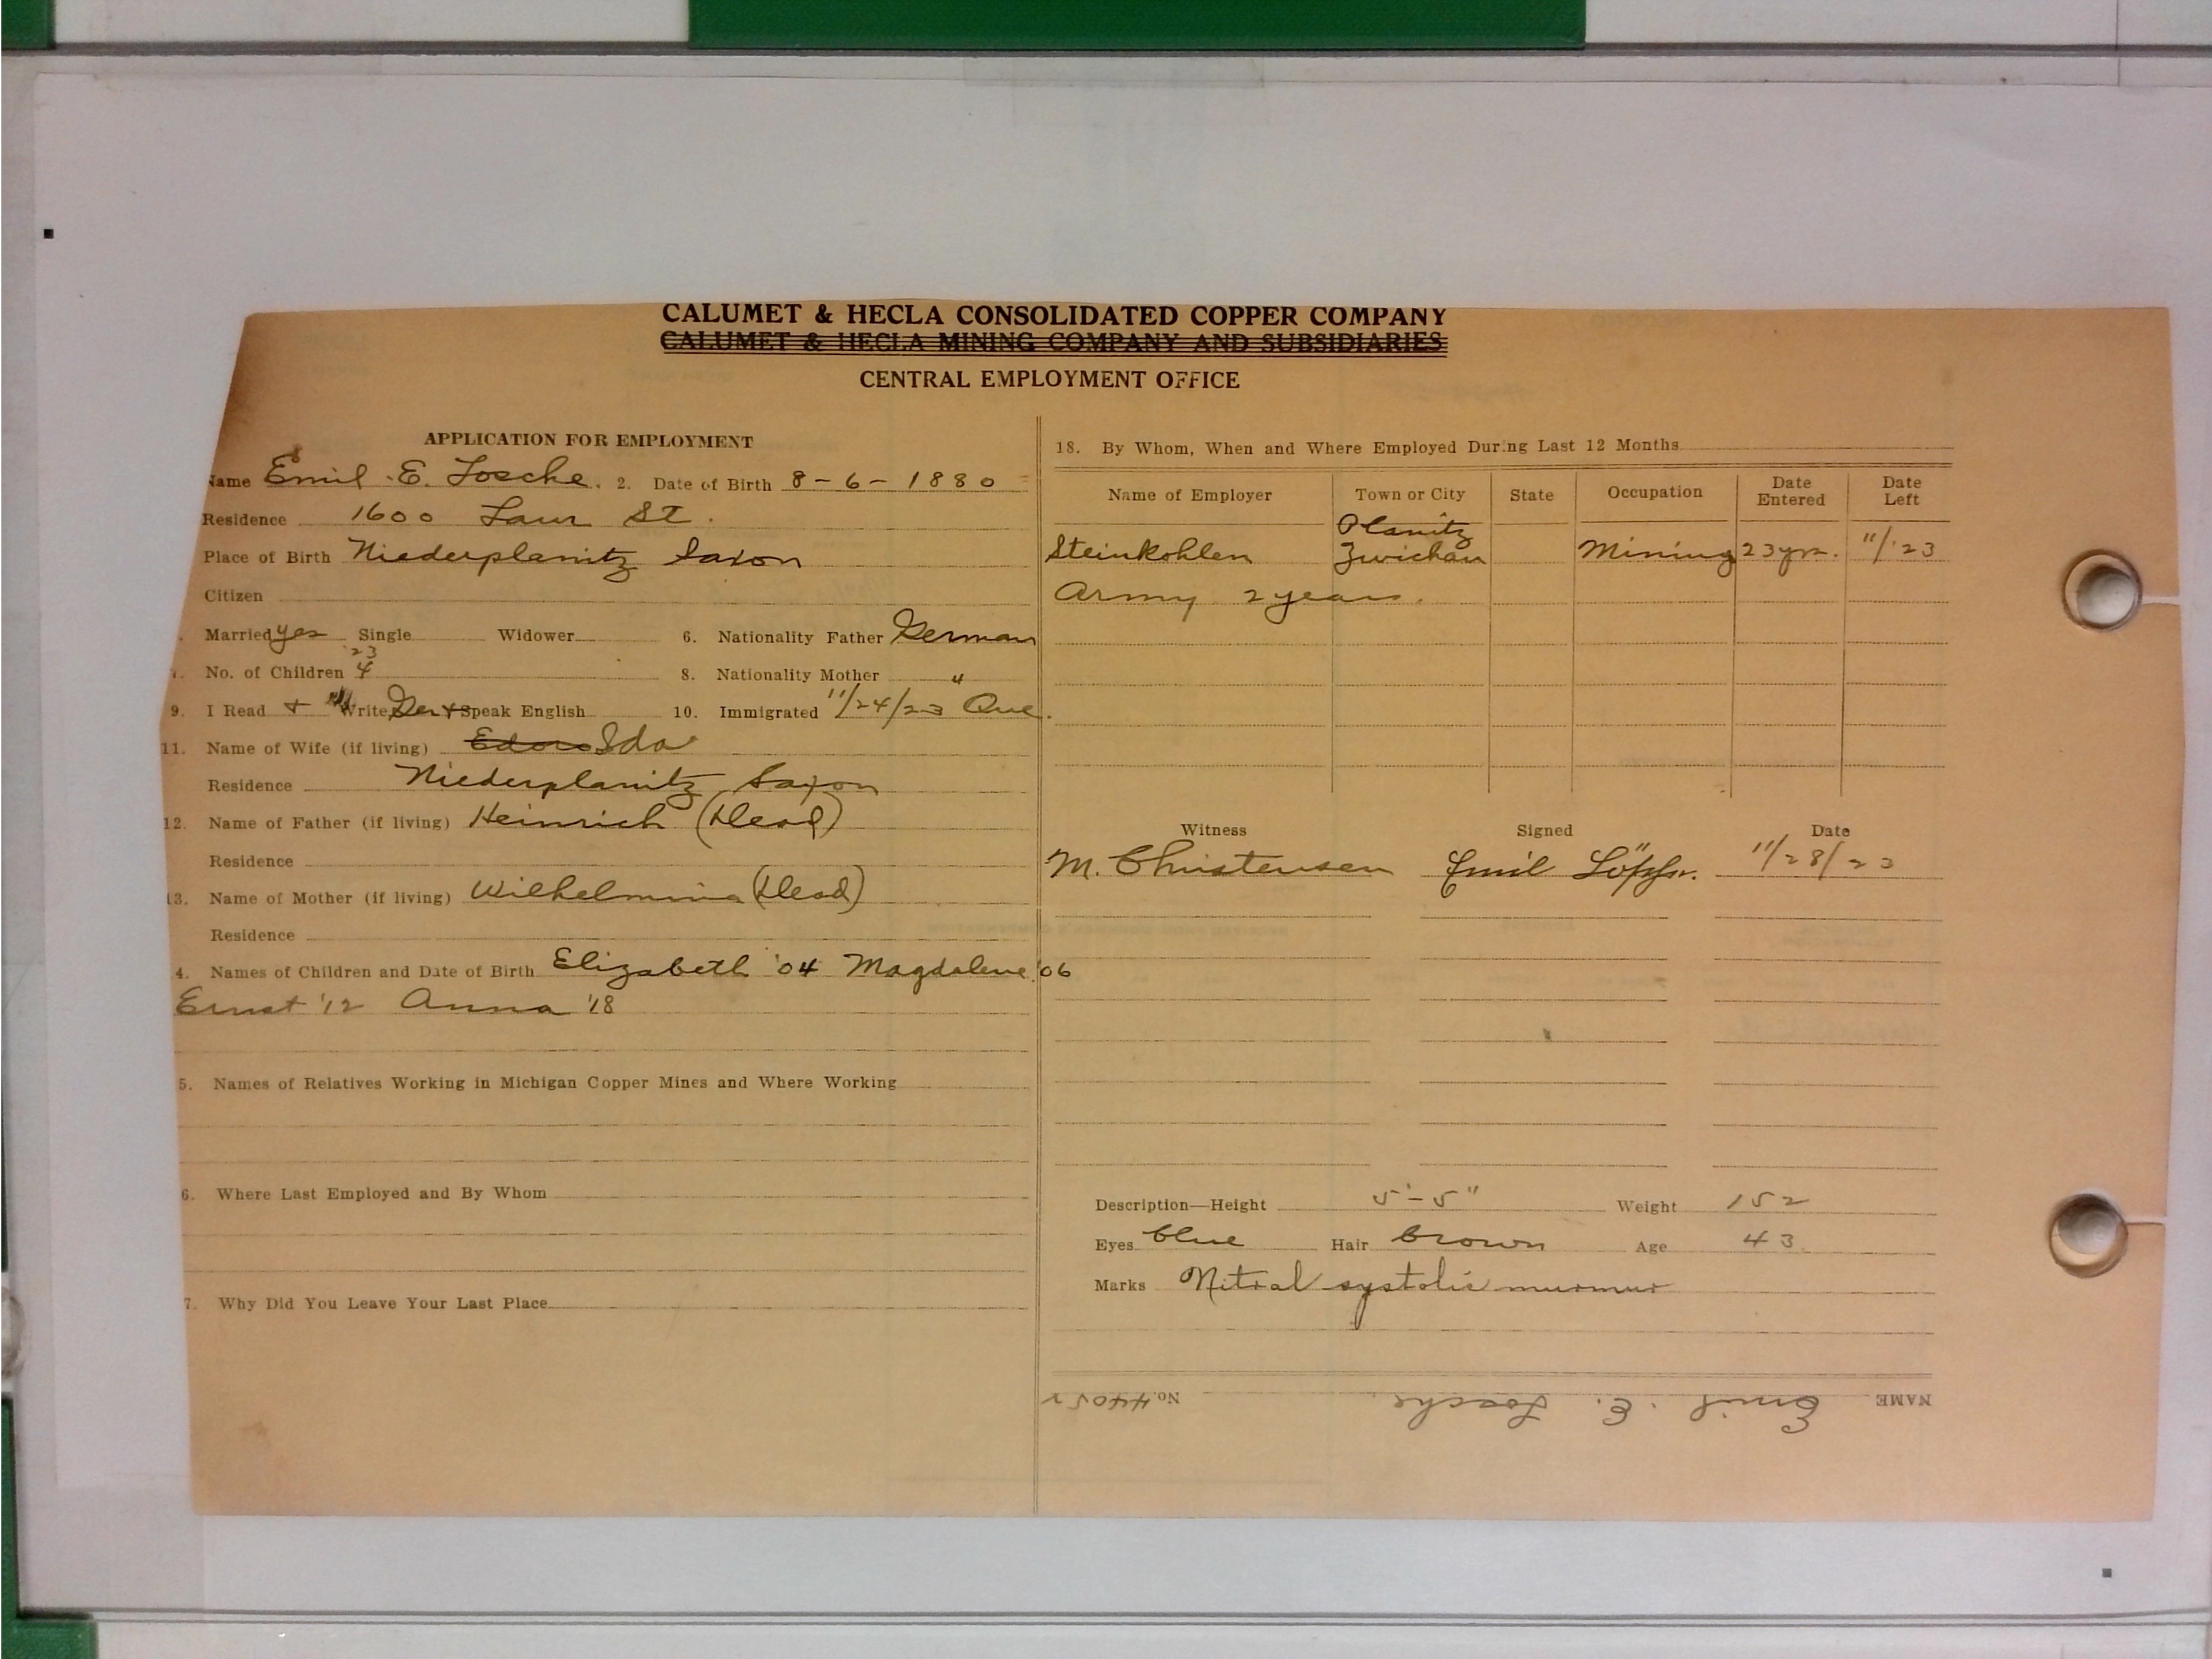 CALUMET & HECLA CONSOLIDATED COPPER COMPANY
CALUMET & HECLA MINING COMPANY AND SUBSIDIARIES
CENTRAL EMPLOYMENT OFFICE
APPLICATION FOR EMPLOYMENT
Name Emil E. Losche. 2. Date of Birth 8-6-1880
Residence 1600 Laur St.
Place of Birth Niederplanitz Saxon
Citizen
Married yes Single Widower 6. Nationality Father German
23
No. of Children 4 8. Nationality Mother "
9. I Read + Write Ger + Speak English 10. Immigrated 11/24/23 Que.
11. Name of Wife (if living) Ida
Residence Niederplanitz Saxon
12. Name of Father (if living) Heinrich (Dead)
Residence
13. Name of Mother (if living) Wilhelmina (Dead)
Residence
4. Names of Children and Date of Birth Elizabeth '04 Magdalene '06
Ernst '12 Anna '18
5. Names of Relatives Working in Michigan Copper Mines and Where Working
6. Where Last Employed and By Whom
7. Why Did You Leave Your Last Place
18. By Whom, When and Where Employed During Last 12 Months
Name of Employer Town or City State Occupation Date Entered Date Left
Planitz
Steinkohlen Zwichau Mining 23 yrs. 11/23
Army 2 years.
Witness Signed Date
M. Christensen Emil 11/28/23
Description—Height 5'-5" Weight 152
Eyes blue Hair brown Age 43
Marks Mitral systolic murmur
NAME Emil E. Losche No. 44052